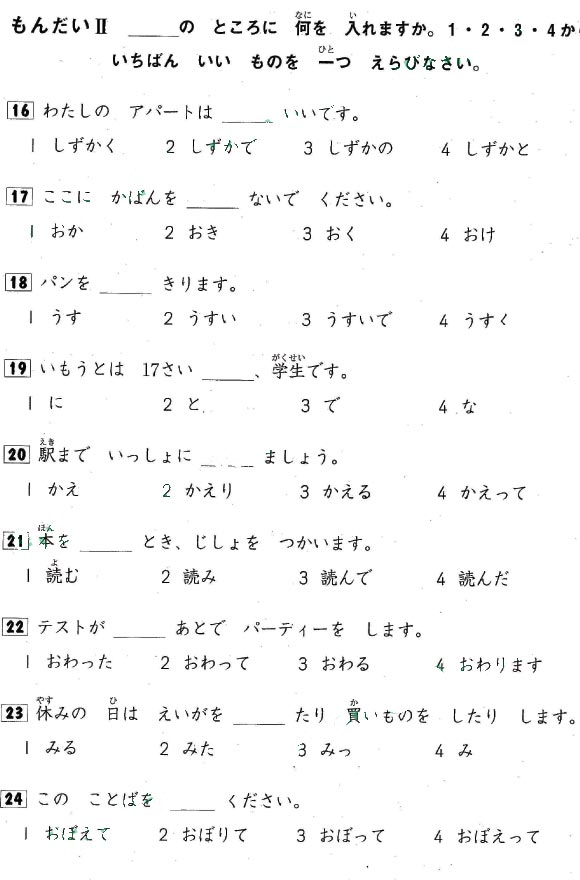 もんだいⅡ ＿＿＿の ところに 何を 入れますか。1・2・3・4か
いちばん いい ものを 一つ えらびなさい。
16 わたしの アパートは ＿＿＿ いいです。
1 しずかく 2 しずかで 3 しずかの 4 しずかと
17 ここに かばんを ＿＿＿ ないで ください。
1 おか 2 おき 3 おく 4 おけ
18 パンを ＿＿＿ きります。
1 うす 2 うすい 3 うすいで 4 うすく
19 いもうとは 17さい ＿＿＿、学生です。
1 に 2 と 3 で 4 な
20 駅まで いっしょに ＿＿＿ ましょう。
1 かえ 2 かえり 3 かえる 4 かえって
21 本を ＿＿＿ とき、じしょを つかいます。
1 読む 2 読み 3 読んで 4 読んだ
22 テストが ＿＿＿ あとで パーティーを します。
1 おわった 2 おわって 3 おわる 4 おわります
23 休みの 日は えいがを ＿＿＿ たり 買いものを したり します。
1 みる 2 みた 3 みっ 4 み
24 この ことばを ＿＿＿ ください。
1 おぼえて 2 おぼりて 3 おぼって 4 おぼえって